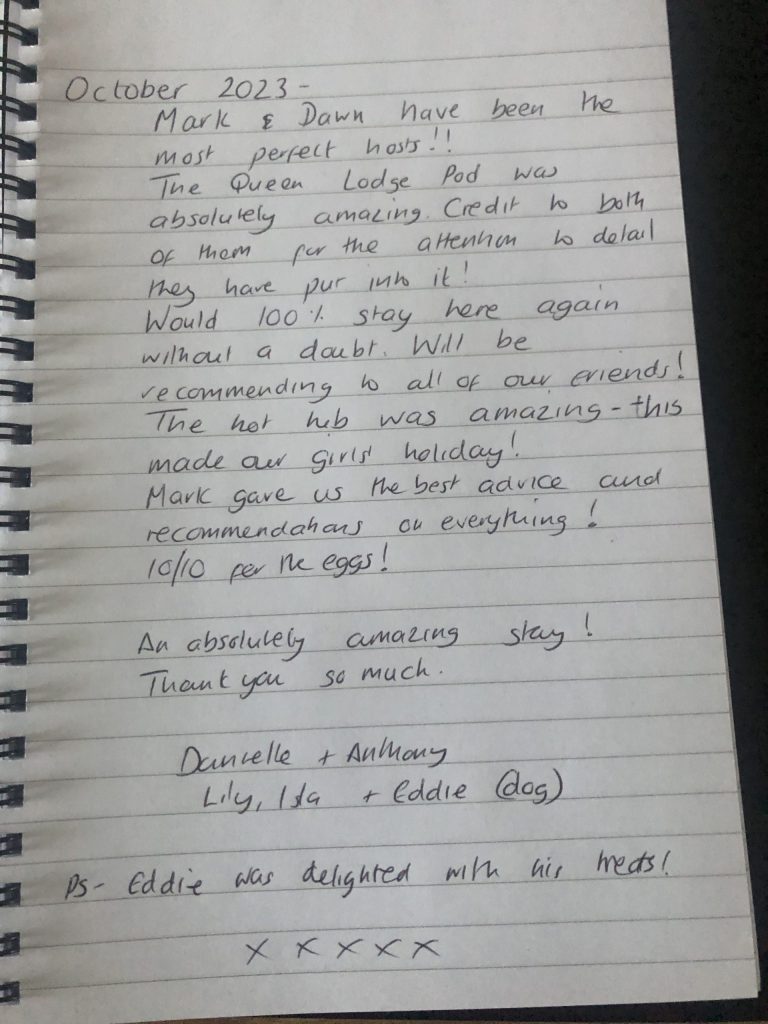 October 2023-
Mark & Dawn have been the
most perfect hosts!!
The Queen Lodge Pod was
absolutely amazing. Credit to both
of them for the attention to detail
they have put into it!
Would 100% stay here again
without a doubt. Will be
recommending to all of our friends!
The hot tub was amazing - this
made our girls' holiday!
Mark gave us the best advice and
recommendations on everything!
10/10 for the eggs!
An absolutely amazing stay!
Thank you so much.
Danielle + Anthony
Lily, Isla + Eddie (dog)
Ps- Eddie was delighted with his treats!
x x x x x